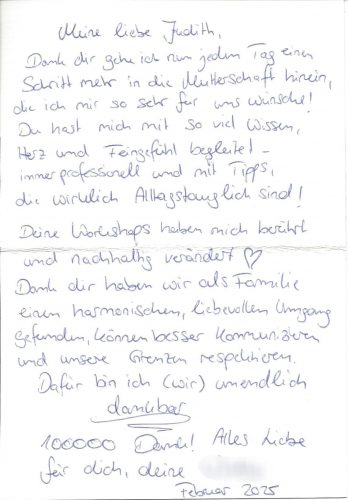 Meine liebe Judith,
Dank dir gehe ich nun jeden Tag einen
Schritt mehr in die Mutterschaft hinein,
die ich mir so sehr für uns wünsche!
Du hast mich mit so viel Wissen,
Herz und Feingefühl begleitet –
immer professionell und mit Tipps,
die wirklich Alltagstauglich sind!
Deine Workshops haben mich berührt
und nachhaltig verändert ♡
Dank dir haben wir als Familie
einen harmonischen, liebevollen Umgang
gefunden, können besser Kommunizieren
und unsere Grenzen respektieren.
Dafür bin ich (wir) unendlich
dankbar
100000 Dank! Alles Liebe
für dich, deine
Februar 2025